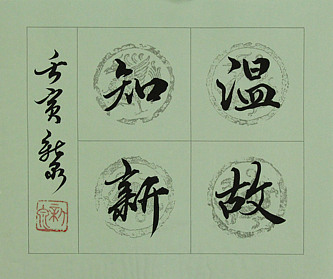 温故
知新
壬寅